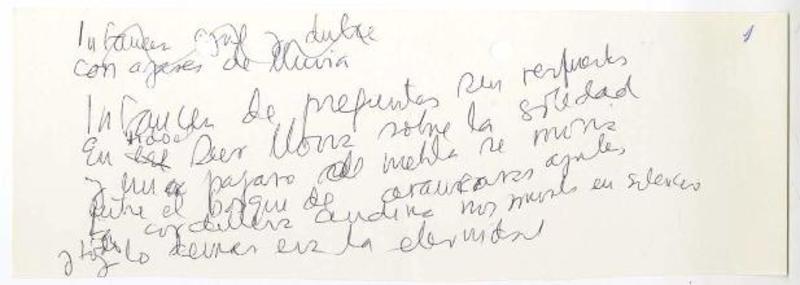 Infancia azul y dulce
con ayeres de lluvia
1
Infancia de preguntas sin respuesta
En Dios llora sobre la soledad
y un pajaro de niebla se moria
Entre el bosque de araucarias azules
La cordillera andina nos miraba en silencio
y todo lo demas era la eternidad